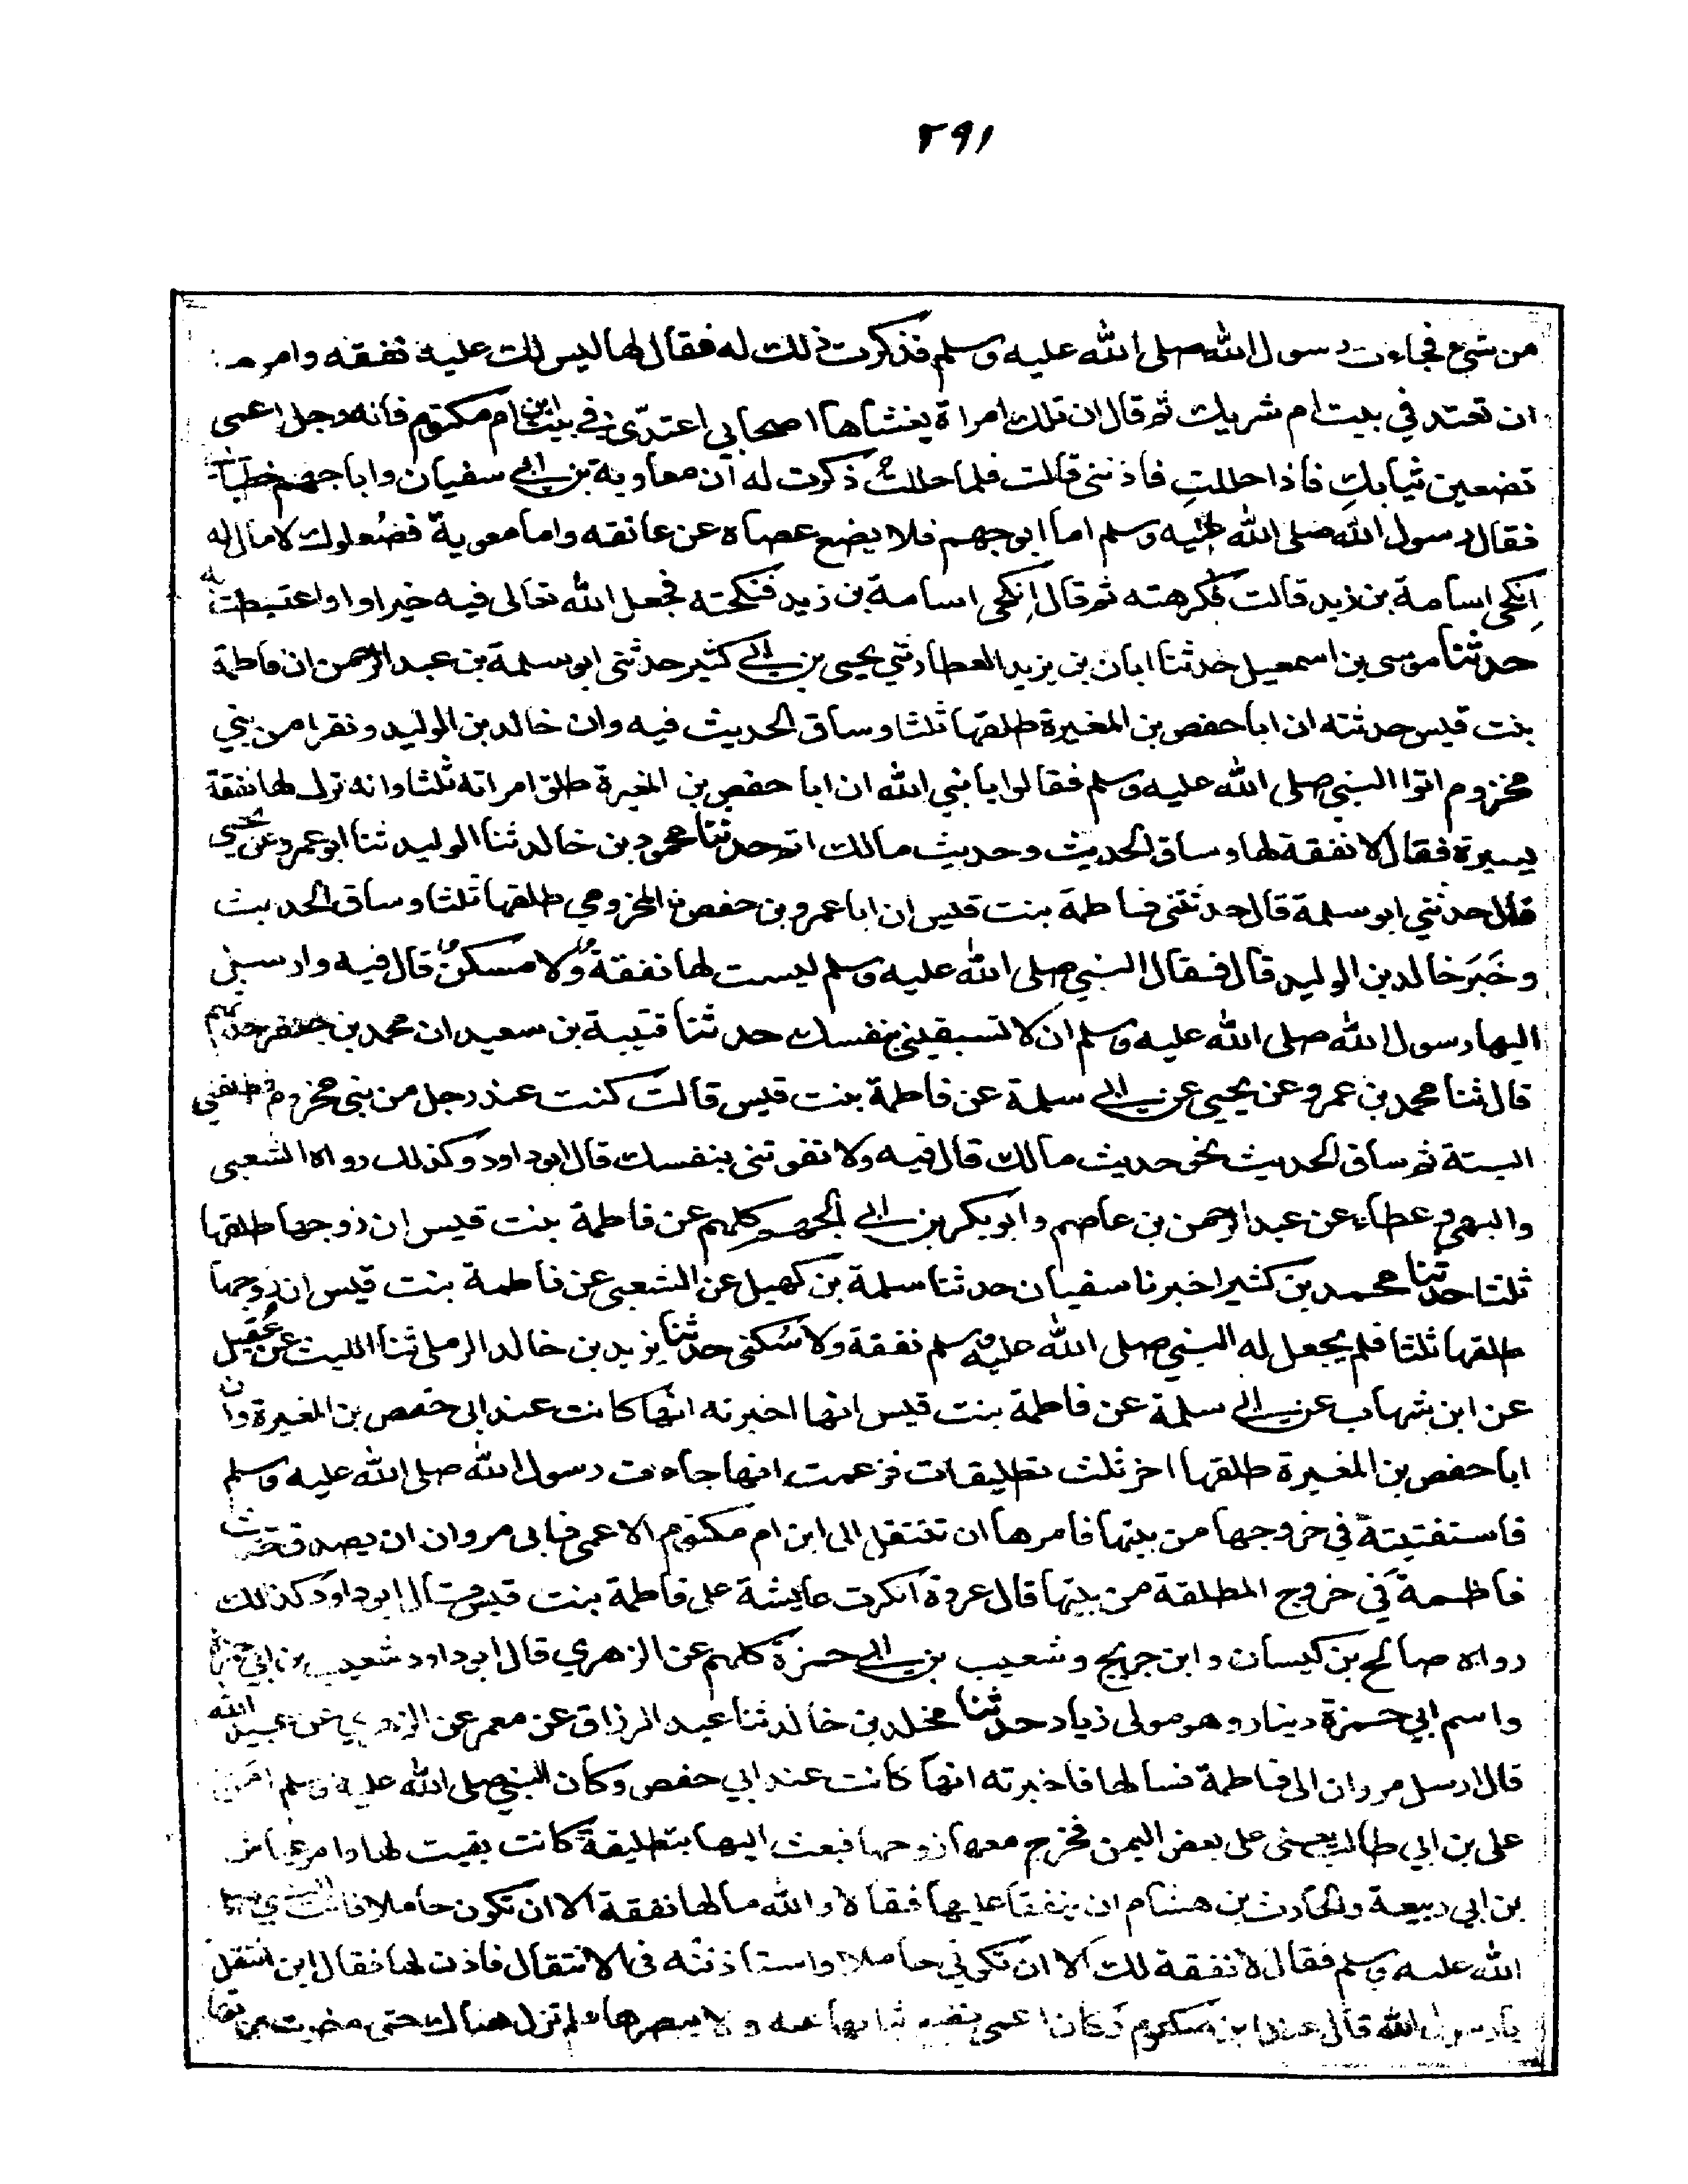 ٢٩١
من شئ فجاءت رسول الله صلى الله عليه وسلم فذكرت ذلك له فقال لها ليس لك عليه نفقه وامرها
ان تعتد في بيت ام شريك ثم قال ان تلك امراة يغشاها اصحابي اعتدّى في بيت ابن ام مكتوم فانه رجل اعمى
تضعين ثيابكِ فاذا حللتِ فاذنني قالت فلما حللتُ ذكرت له ان معاوية بن ابي سفيان وابا جهم خطباني
فقال رسول الله صلى الله عليه وسلم اما ابو جهم فلا يضع عصاه عن عاتقه واما معوية فصُعلوك لا مال له
اِنكحى اسامة بن زيد قالت فكرهته ثم قال اِنكحى اسامة بن زيد فنكحته فجعل الله تعالى فيه خيرا واغتبطت به
حدثنا موسى بن اسمعيل حدثنا ابان بن يزيد العطار ثني يحيى بن ابي كثير حدثنى ابو سلمة بن عبد الرحمن ان فاطمة
بنت قيس حدثته ان ابا حفص بن المغيرة طلقها ثلثا وساق الحديث فيه وان خالد بن الوليد ونفرا من بني
مخزوم اتوا النبي صلى الله عليه وسلم فقالوا يا نبي الله ان ابا حفص بن المغيرة طلق امراته ثلثا وانه ترك لها نفقة
يسيرة فقال لا نفقة لها وساق الحديث وحديث مالك اتم حدثنا محمود بن خالد ثنا الوليد ثنا ابو عمرو عن يحيى
قال حدثني ابو سلمة قال حدثتنى فاطمة بنت قيس ان ابا عمرو بن حفص المخزومي طلقها ثلثا وساق الحديث
وخَبَرَ خالد بن الوليد قال فقال النبي صلى الله عليه وسلم ليست لها نفقة ولا مسكن قال فيه وارسل
اليها رسول الله صلى الله عليه وسلم ان لا تسبقيني بنفسك حدثنا قتيبة بن سعيد ان محمد بن جعفر حدثهم
قال ثنا محمد بن عمرو عن يحيى عن ابي سلمة عن فاطمة بنت قيس قالت كنت عند رجل من بنى مخزوم فطلقني
البتة ثم ساق الحديث نحو حديث مالك قال فيه ولا تفوتنى بنفسك قال ابو داود وكذلك رواه الشعبى
والبهي وعطاء عن عبد الرحمن بن عاصم وابو بكر بن ابي الجهم كلهم عن فاطمة بنت قيس ان زوجها طلقها
ثلثا حدثنا محمد بن كثير اخبرنا سفيان حدثنا سلمة بن كهيل عن الشعبى عن فاطمة بنت قيس ان زوجها
طلقها ثلثا فلم يجعل له النبي صلى الله عليه وسلم نفقة ولا سُكنى حدثنا يزيد بن خالد الرملى ثنا الليث عن عُقيل
عن ابن شهاب عن ابي سلمة عن فاطمة بنت قيس انها اخبرته انها كانت عند ابى حفص بن المغيرة وان
ابا حفص بن المغيرة طلقها اخر ثلث تطليقات فزعمت انها جاءت رسول الله صلى الله عليه وسلم
فاستفتيته في خروجها من بيتها فامرها ان تنتقل الى ابن ام مكتوم الاعمى فابى مروان ان يصدق حديث
فاطمة في خروج المطلقة من بيتها قال عروة انكرت عايشة على فاطمة بنت قيس قال ابو داود كذلك
رواه صالح بن كيسان وابن جريج وشعيب بن ابي حمزة كلهم عن الزهري قال ابو داود شعيب بن ابي حمزة
واسم ابي حمزة دينار وهو مولى زياد حدثنا مخلد بن خالد ثنا عبد الرزاق عن معمر عن الزهري عن عبيد الله
قال ارسل مروان الى فاطمة فسالها فاخبرته انها كانت عند ابي حفص وكان النبي صلى الله عليه وسلم امر
على بن ابي طالب يعنى على بعض اليمن فخرج معها زوجها فبعث اليها بتطليقة كانت بقيت لها وامر عياش
بن ابي ربيعة والحارث بن هشام ان ينفقا عليها فقالا والله ما لها نفقة الا ان تكون حاملا فاتت النبي صلى
الله عليه وسلم فقال لا نفقة لك الا ان تكوني حاملا واستاذنته فى الانتقال فاذن لها فقال اين انتقل
يا رسول الله قال عند ابن مكتوم وكان اعمى تضع ثيابها عنده ولا يبصرها فلم تزل هناك حتى مضت عدتها